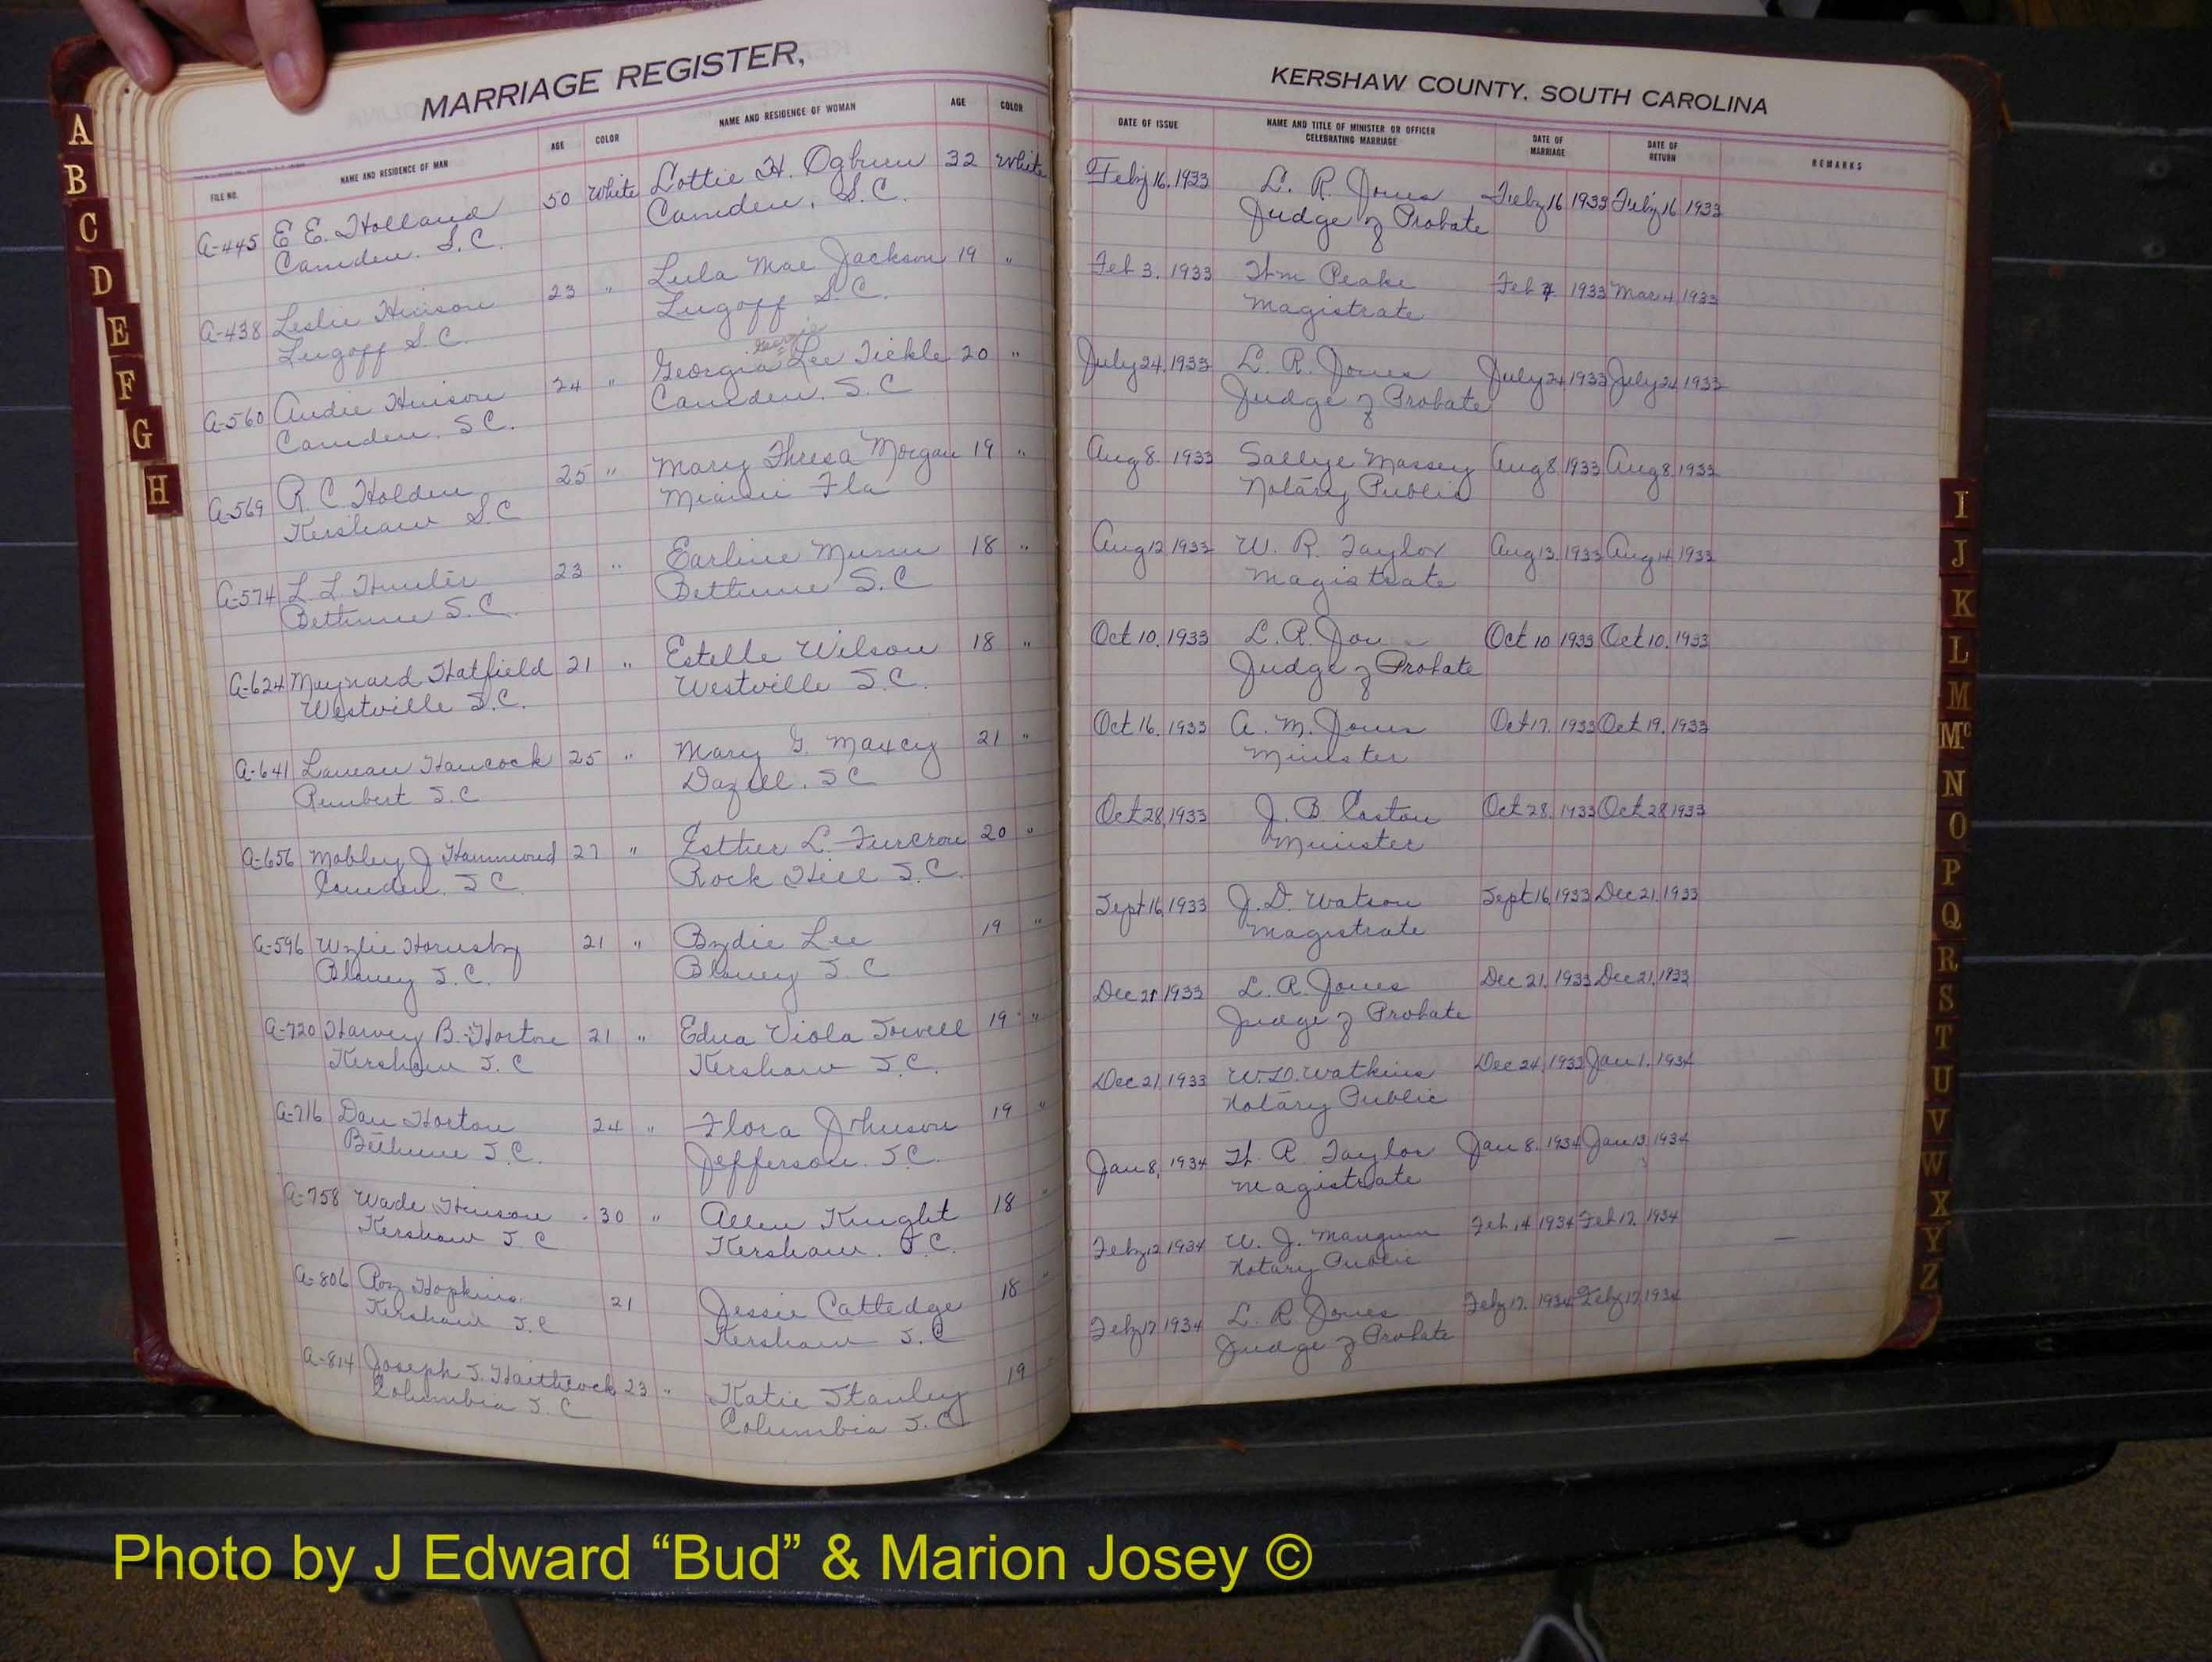 MARRIAGE REGISTER,
FILE NO. NAME AND RESIDENCE OF MAN AGE COLOR NAME AND RESIDENCE OF WOMAN AGE COLOR
A-445 E E. Holland 50 White Lottie H. Ogburn 32 White
Camden, S.C. Camden, S.C.
A-438 Leslie Hinson 23 " Lula Mae Jackson 19 "
Lugoff S.C. Lugoff S.C.
Georgie
A-560 Audie Hinson 24 " Georgia Lee Tickle 20 "
Camden, S.C. Camden, S.C
A-569 R. C. Holden 25 " Mary Thresa Morgan 19 "
Kershaw S.C Miami Fla
A-574 L. L. Hunter 23 " Earline Munn 18 "
Bethune S.C. Bethune S.C
A-624 Maynard Hatfield 21 " Estelle Wilson 18 "
Westville S.C. Westville S.C.
A-641 Hancock 25 " Mary G. Maxcy 21 "
Rembert S.C Dazell, SC
A-656 Mobley J Hammond 27 " Esther L. Furcron 20 "
Camden, S.C. Rock Hill S.C.
A-596 Wylie Hornsby 21 " Bydie Lee 19 "
Blaney S.C. Blaney S.C
A-720 Harvey B. Horton 21 " Edna Viola Sowell 19 "
Kershaw S.C Kershaw S.C.
A-716 Dan Horton 24 " Flora Johnson 19 "
Bethune S.C. Jefferson. S.C.
A-758 Wade Hinson 30 " Allen Knight 18 "
Kershaw S.C Kershaw. S.C.
A-806 Roy Hopkins 21 Jessie Cattedge 18 "
Kershaw S.C Kershaw S.C
A-814 Joseph J. Haithcock 23 " Katie Stanley 19
Columbia S.C Columbia S.C
KERSHAW COUNTY, SOUTH CAROLINA
DATE OF ISSUE NAME AND TITLE OF MINISTER OR OFFICER CELEBRATING MARRIAGE DATE OF MARRIAGE DATE OF RETURN REMARKS
Feby 16, 1933 L. R. Jones Feby 16 1933 Feby 16 1933
Judge of Probate
Feb 3, 1933 Peake Feb 4 1933 Mar 4 1933
Magistrate
July 24, 1933 L. R. Jones July 24 1933 July 24 1933
Judge of Probate
Aug 8. 1933 Sallye Massey Aug 8, 1933 Aug 8, 1933
Notary Public
Aug 12 1933 W. R. Taylor Aug 13, 1933 Aug 14 1933
Magistrate
Oct 10, 1933 L. R. Jones Oct 10 1933 Oct 10, 1933
Judge of Probate
Oct 16, 1933 A. M. Jones Oct 17, 1933 Oct 19, 1933
Minister
Oct 28, 1933 J. B. Caston Oct 28, 1933 Oct 28 1933
Minister
Sept 16, 1933 J. D. Watson Sept 16, 1933 Dec 21, 1933
Magistrate
Dec 21 1933 L. R. Jones Dec 21, 1933 Dec 21, 1933
Judge of Probate
Dec 21, 1933 W. D. Watkins Dec 24, 1933 Jan 1, 1934
Notary Public
Jan 8, 1934 R. Taylor Jan 8, 1934 Jan 13, 1934
Magistrate
Feby 12 1934 W. J. Mangum Feb 14 1934 Feb 17, 1934
Notary Public
Feby 17 1934 L. R. Jones Feby 17, 1934 Feby 17, 1934
Judge of Probate
A
B
C
D
E
F
G
H
I
J
K
L
M
Mc
N
O
P
Q
R
S
T
U
V
W
X
Y
Z
Photo by J Edward “Bud” & Marion Josey ©